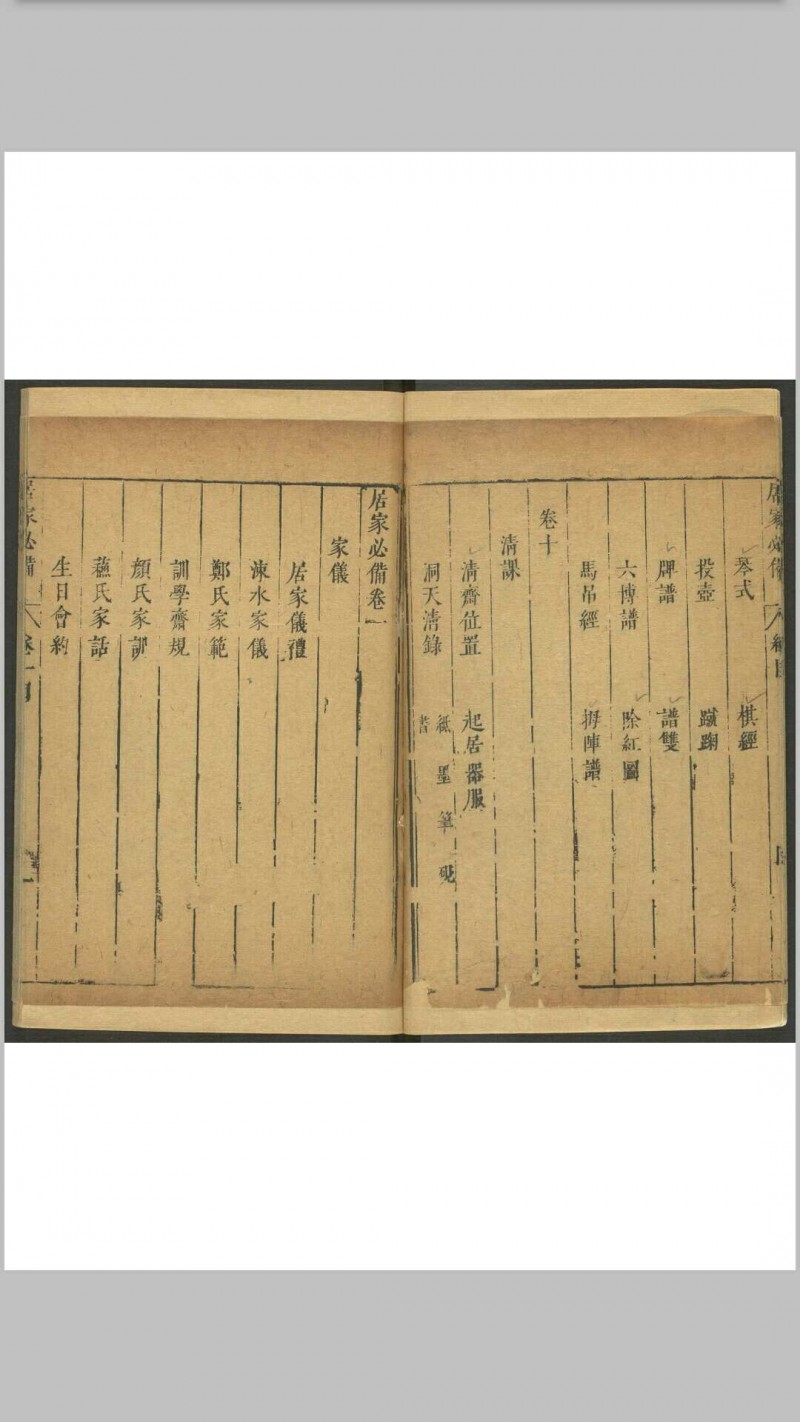 居家必備
琴式 棋經
投壺 蹴踘
牌譜 譜雙
六博譜 除紅圖
馬吊經 拇陣譜
卷十
清課
清齋位置 起居器服
洞天清錄 紙墨筆硯
居家必備卷一
家儀
居家儀禮
涑水家儀
鄭氏家範
訓學齋規
顏氏家訓
蘓氏家話
生日會約
居家必備 卷一